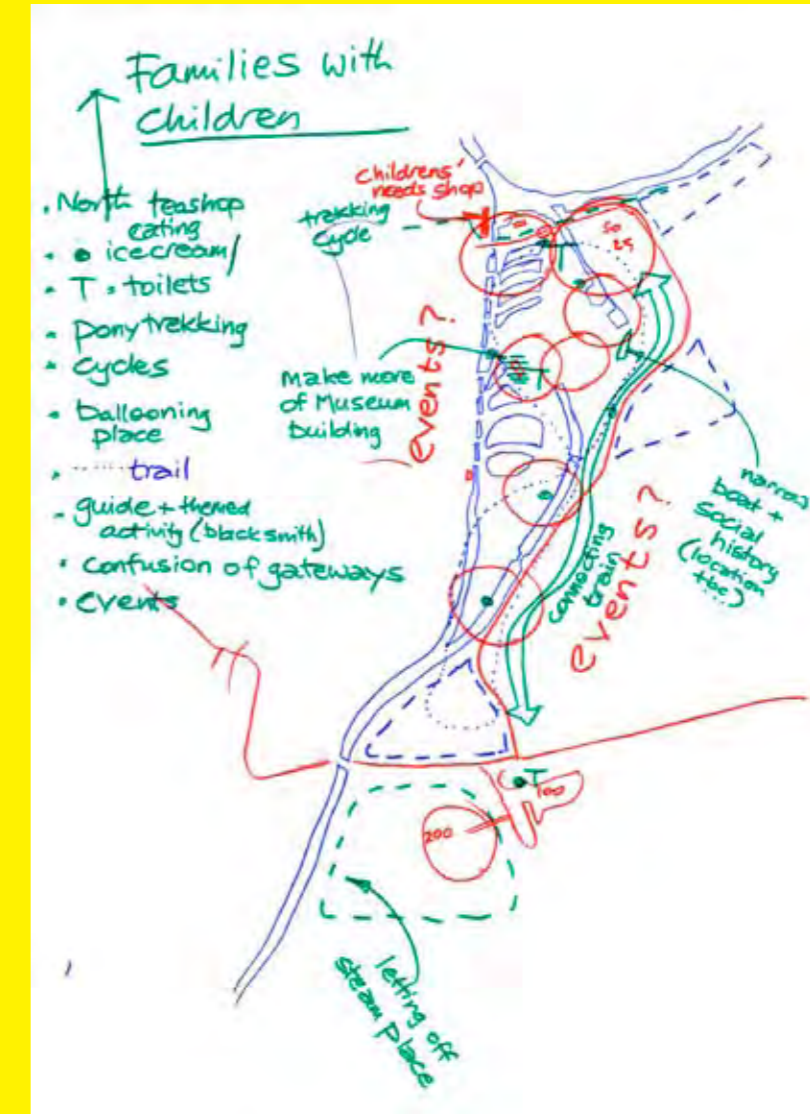 Families with
Children
• North teashop
eating
• icecream/
• T • toilets
• pony trekking
• cycles
• ballooning
place
• ...... trail
- guide + themed
activity (blacksmith)
• confusion of gateways
• events
childrens'
needs shop
trekking
cycle
50
25
T
events?
make more
of Museum
building
T
narrow
boat +
social
history
(location
tbc)
connecting
train
events?
T
100
200
letting off
steam place